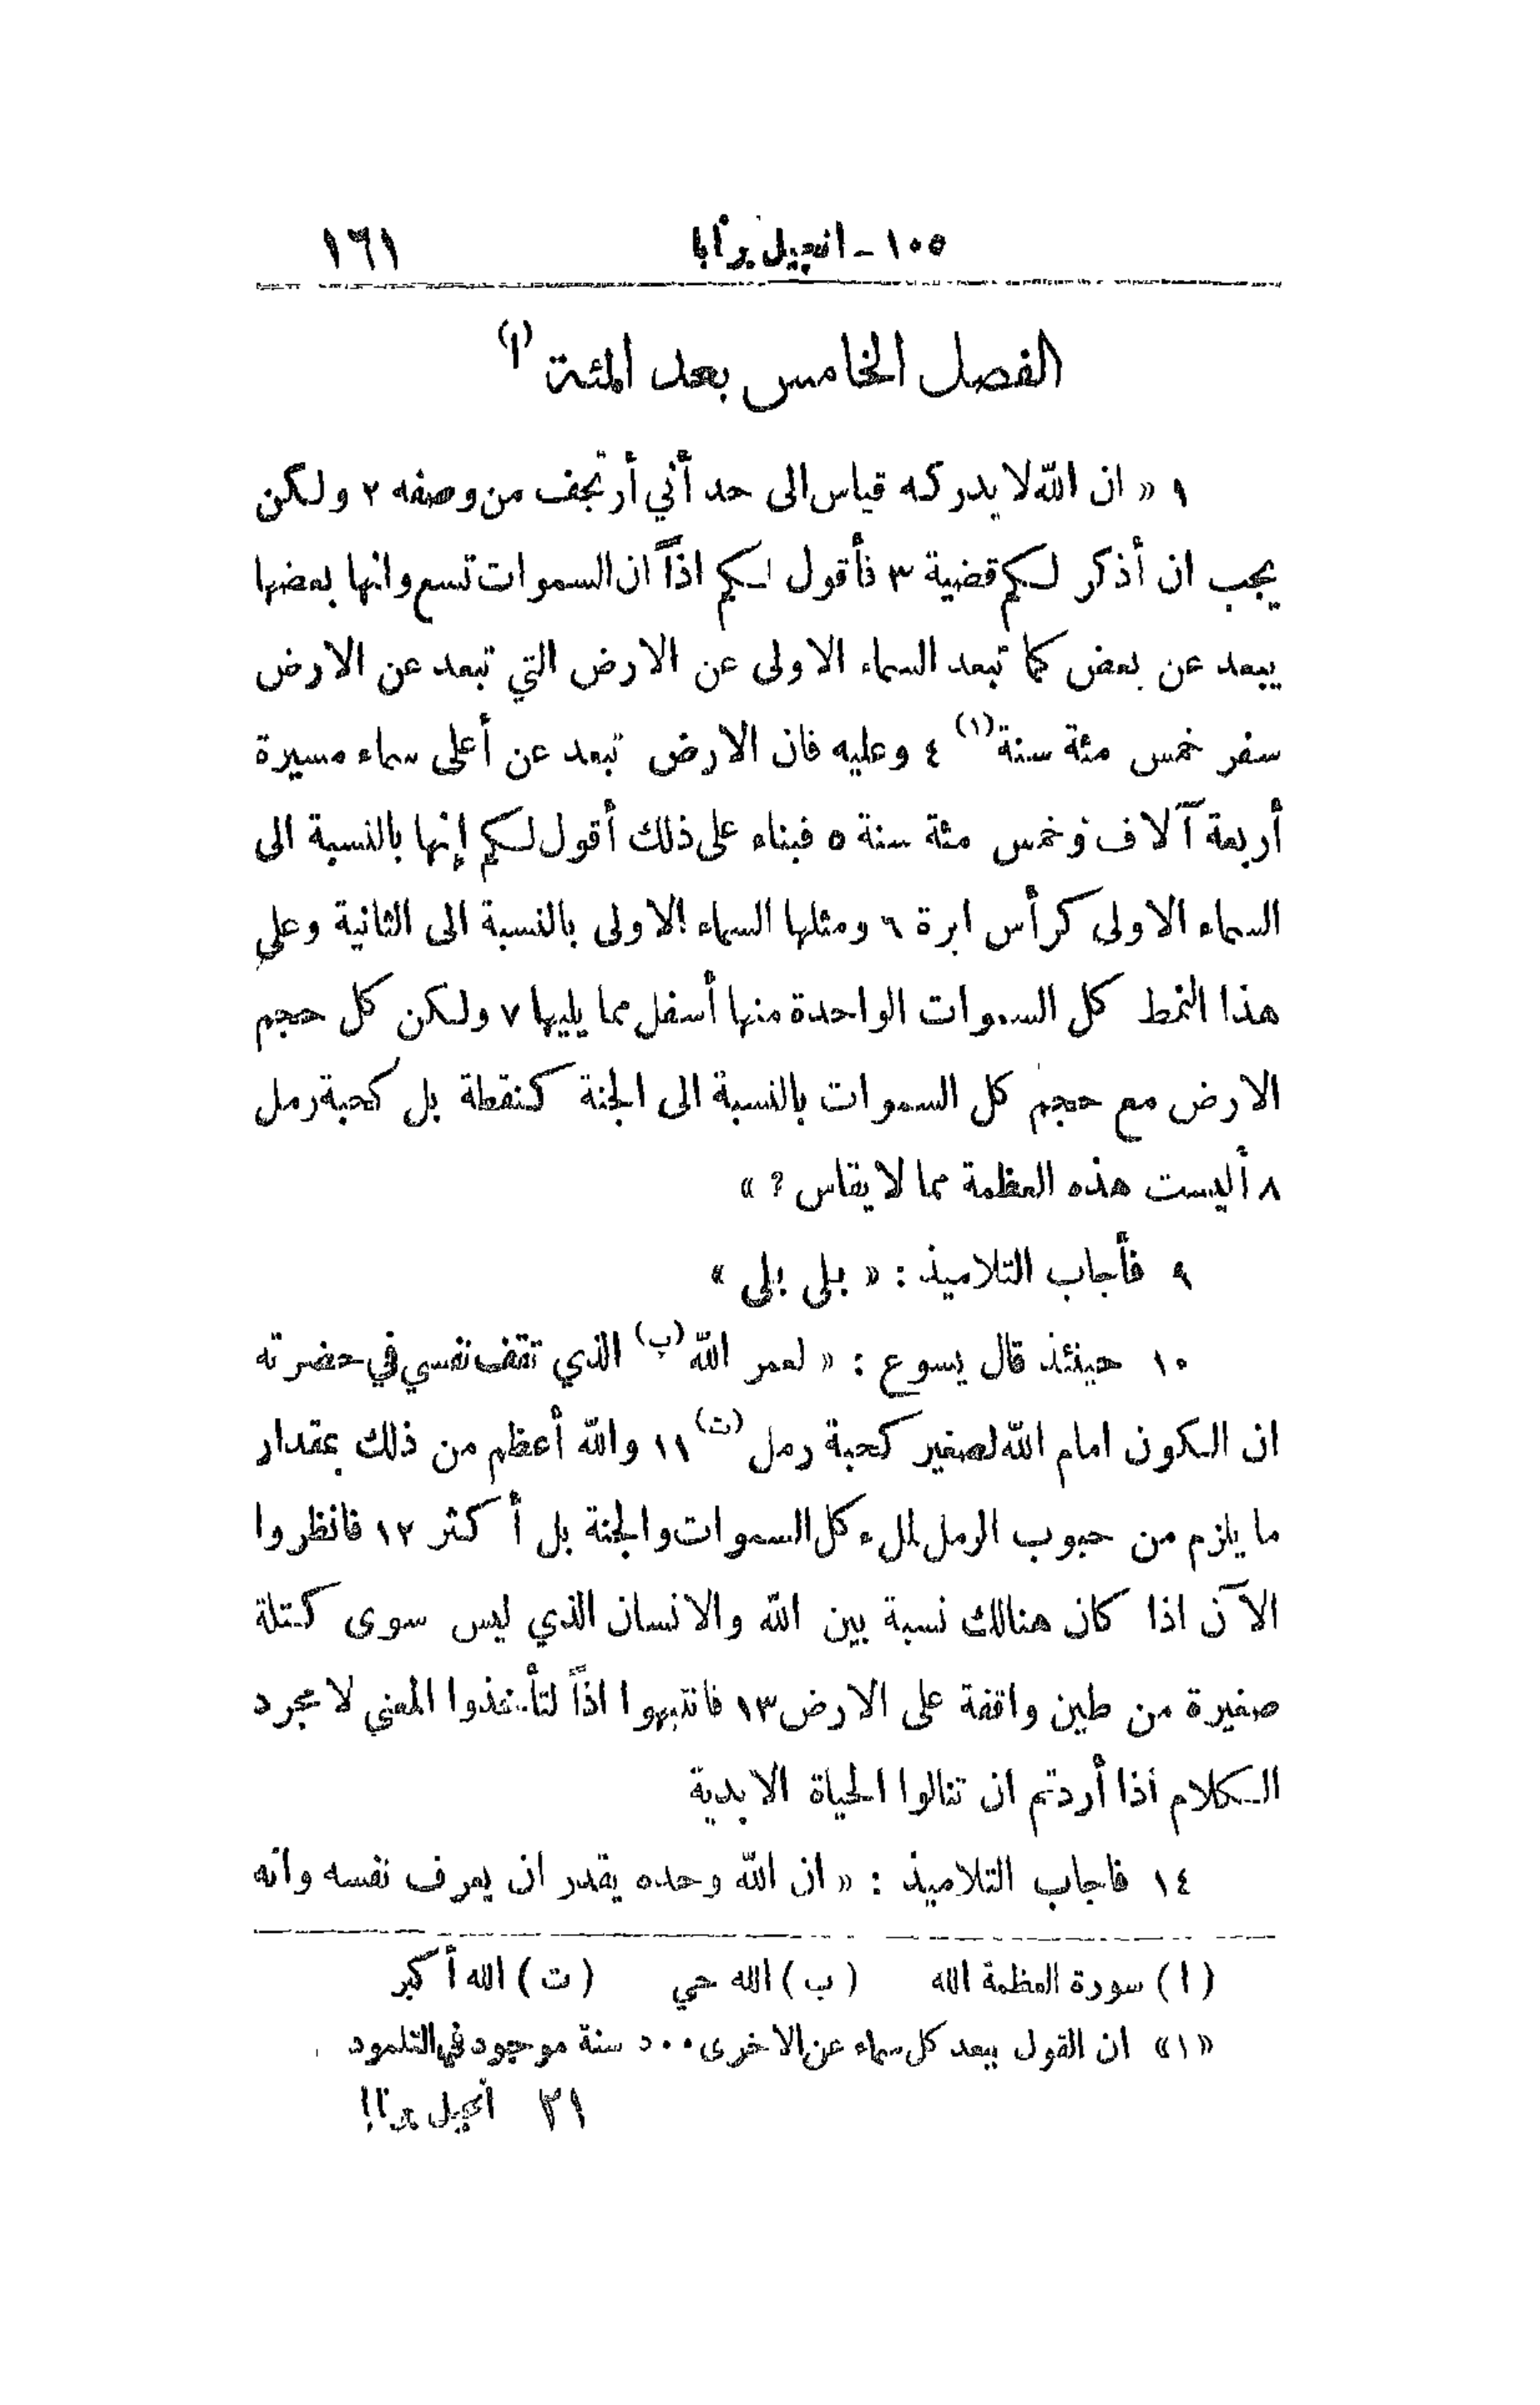 ١٠٥ - انجيل برنابا ١٦١
الفصل الخامس بعد المئة (ا)
١ « ان الله لا يدركه قياس الى حد أني أرتجف من وصفه ٢ ولكن
يجب ان أذكر لكم قضية ٣ فأقول لكم اذاً ان السموات تسع وانها بعضها
يبعد عن بعض كما تبعد السماء الاولى عن الارض التي تبعد عن الارض
سفر خمس مئة سنة (١) ٤ وعليه فان الارض تبعد عن أعلى سماء مسيرة
أربعة آلاف وخمس مئة سنة ٥ فبناء على ذلك أقول لكم إنها بالنسبة الى
السماء الاولى كرأس ابرة ٦ ومثلها السماء الاولى بالنسبة الى الثانية وعلى
هذا النمط كل السموات الواحدة منها أسفل مما يليها ٧ ولكن كل حجم
الارض مع حجم كل السموات بالنسبة الى الجنة كنقطة بل كحبة رمل
٨ أليست هذه العظمة مما لا يقاس ؟ »
٩ فأجاب التلاميذ : « بلى بلى »
١٠ حينئذ قال يسوع : « لعمر الله (ب) الذي تقف نفسي في حضرته
ان الكون امام الله لصغير كحبة رمل (ت) ١١ والله أعظم من ذلك بمقدار
ما يلزم من حبوب الرمل لملء كل السموات والجنة بل أكثر ١٢ فانظروا
الآن اذا كان هنالك نسبة بين الله والانسان الذي ليس سوى كتلة
صغيرة من طين واقفة على الارض ١٣ فانتبهوا اذاً لتأخذوا المعنى لا مجرد
الكلام اذا أردتم ان تنالوا الحياة الابدية
١٤ فاجاب التلاميذ : « ان الله وحده يقدر ان يعرف نفسه وانه
(ا) سورة العظمة الله (ب) الله حي (ت) الله أكبر
«١» ان القول ببعد كل سماء عن الاخرى ٥٠٠ سنة موجود في التلمود
٢١ انجيل برنابا